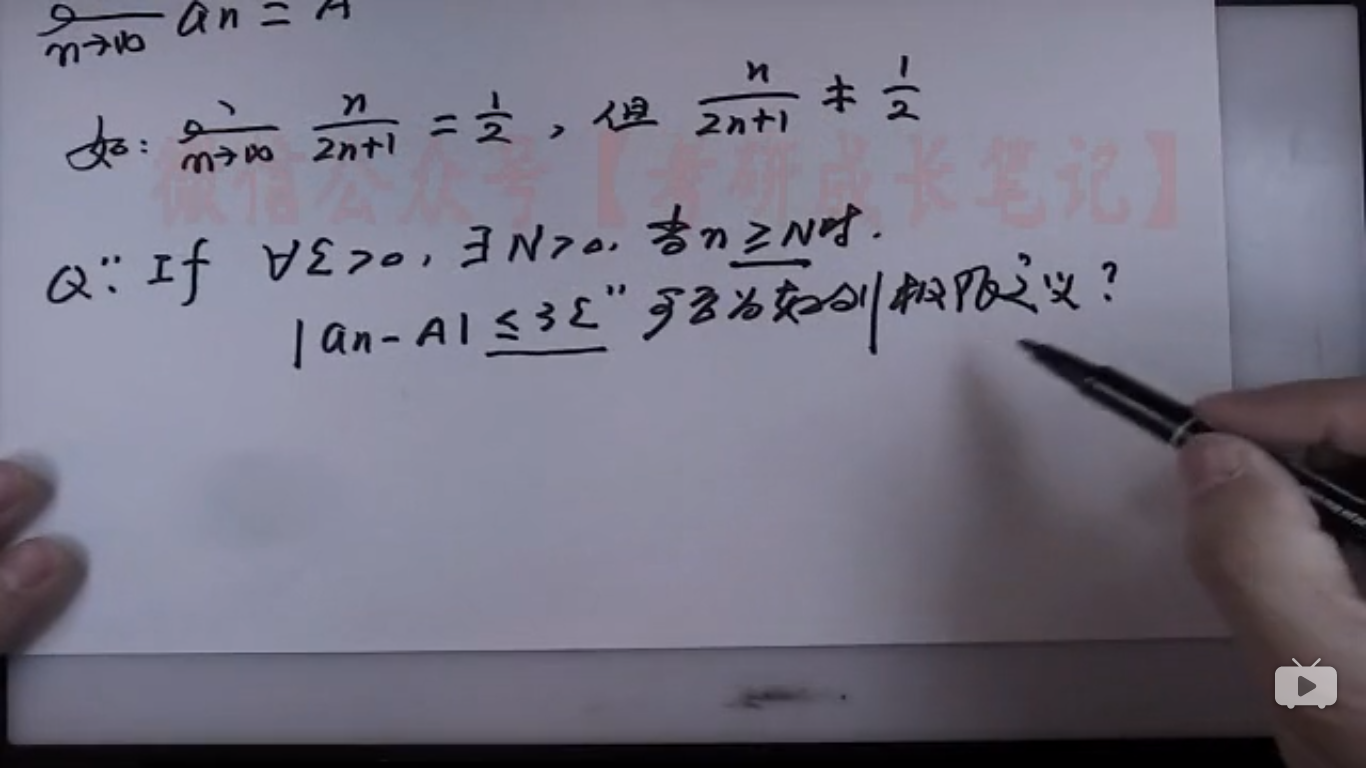 lim n→∞ an = A
如: lim n→∞ n/2n+1 = 1/2, 但 n/2n+1 ≠ 1/2
微信公众号【考研成长笔记】
Q: "If ∀ε>0, ∃N>0, 当n≥N时.
|an-A| ≤3ε" 可否为数列极限定义?